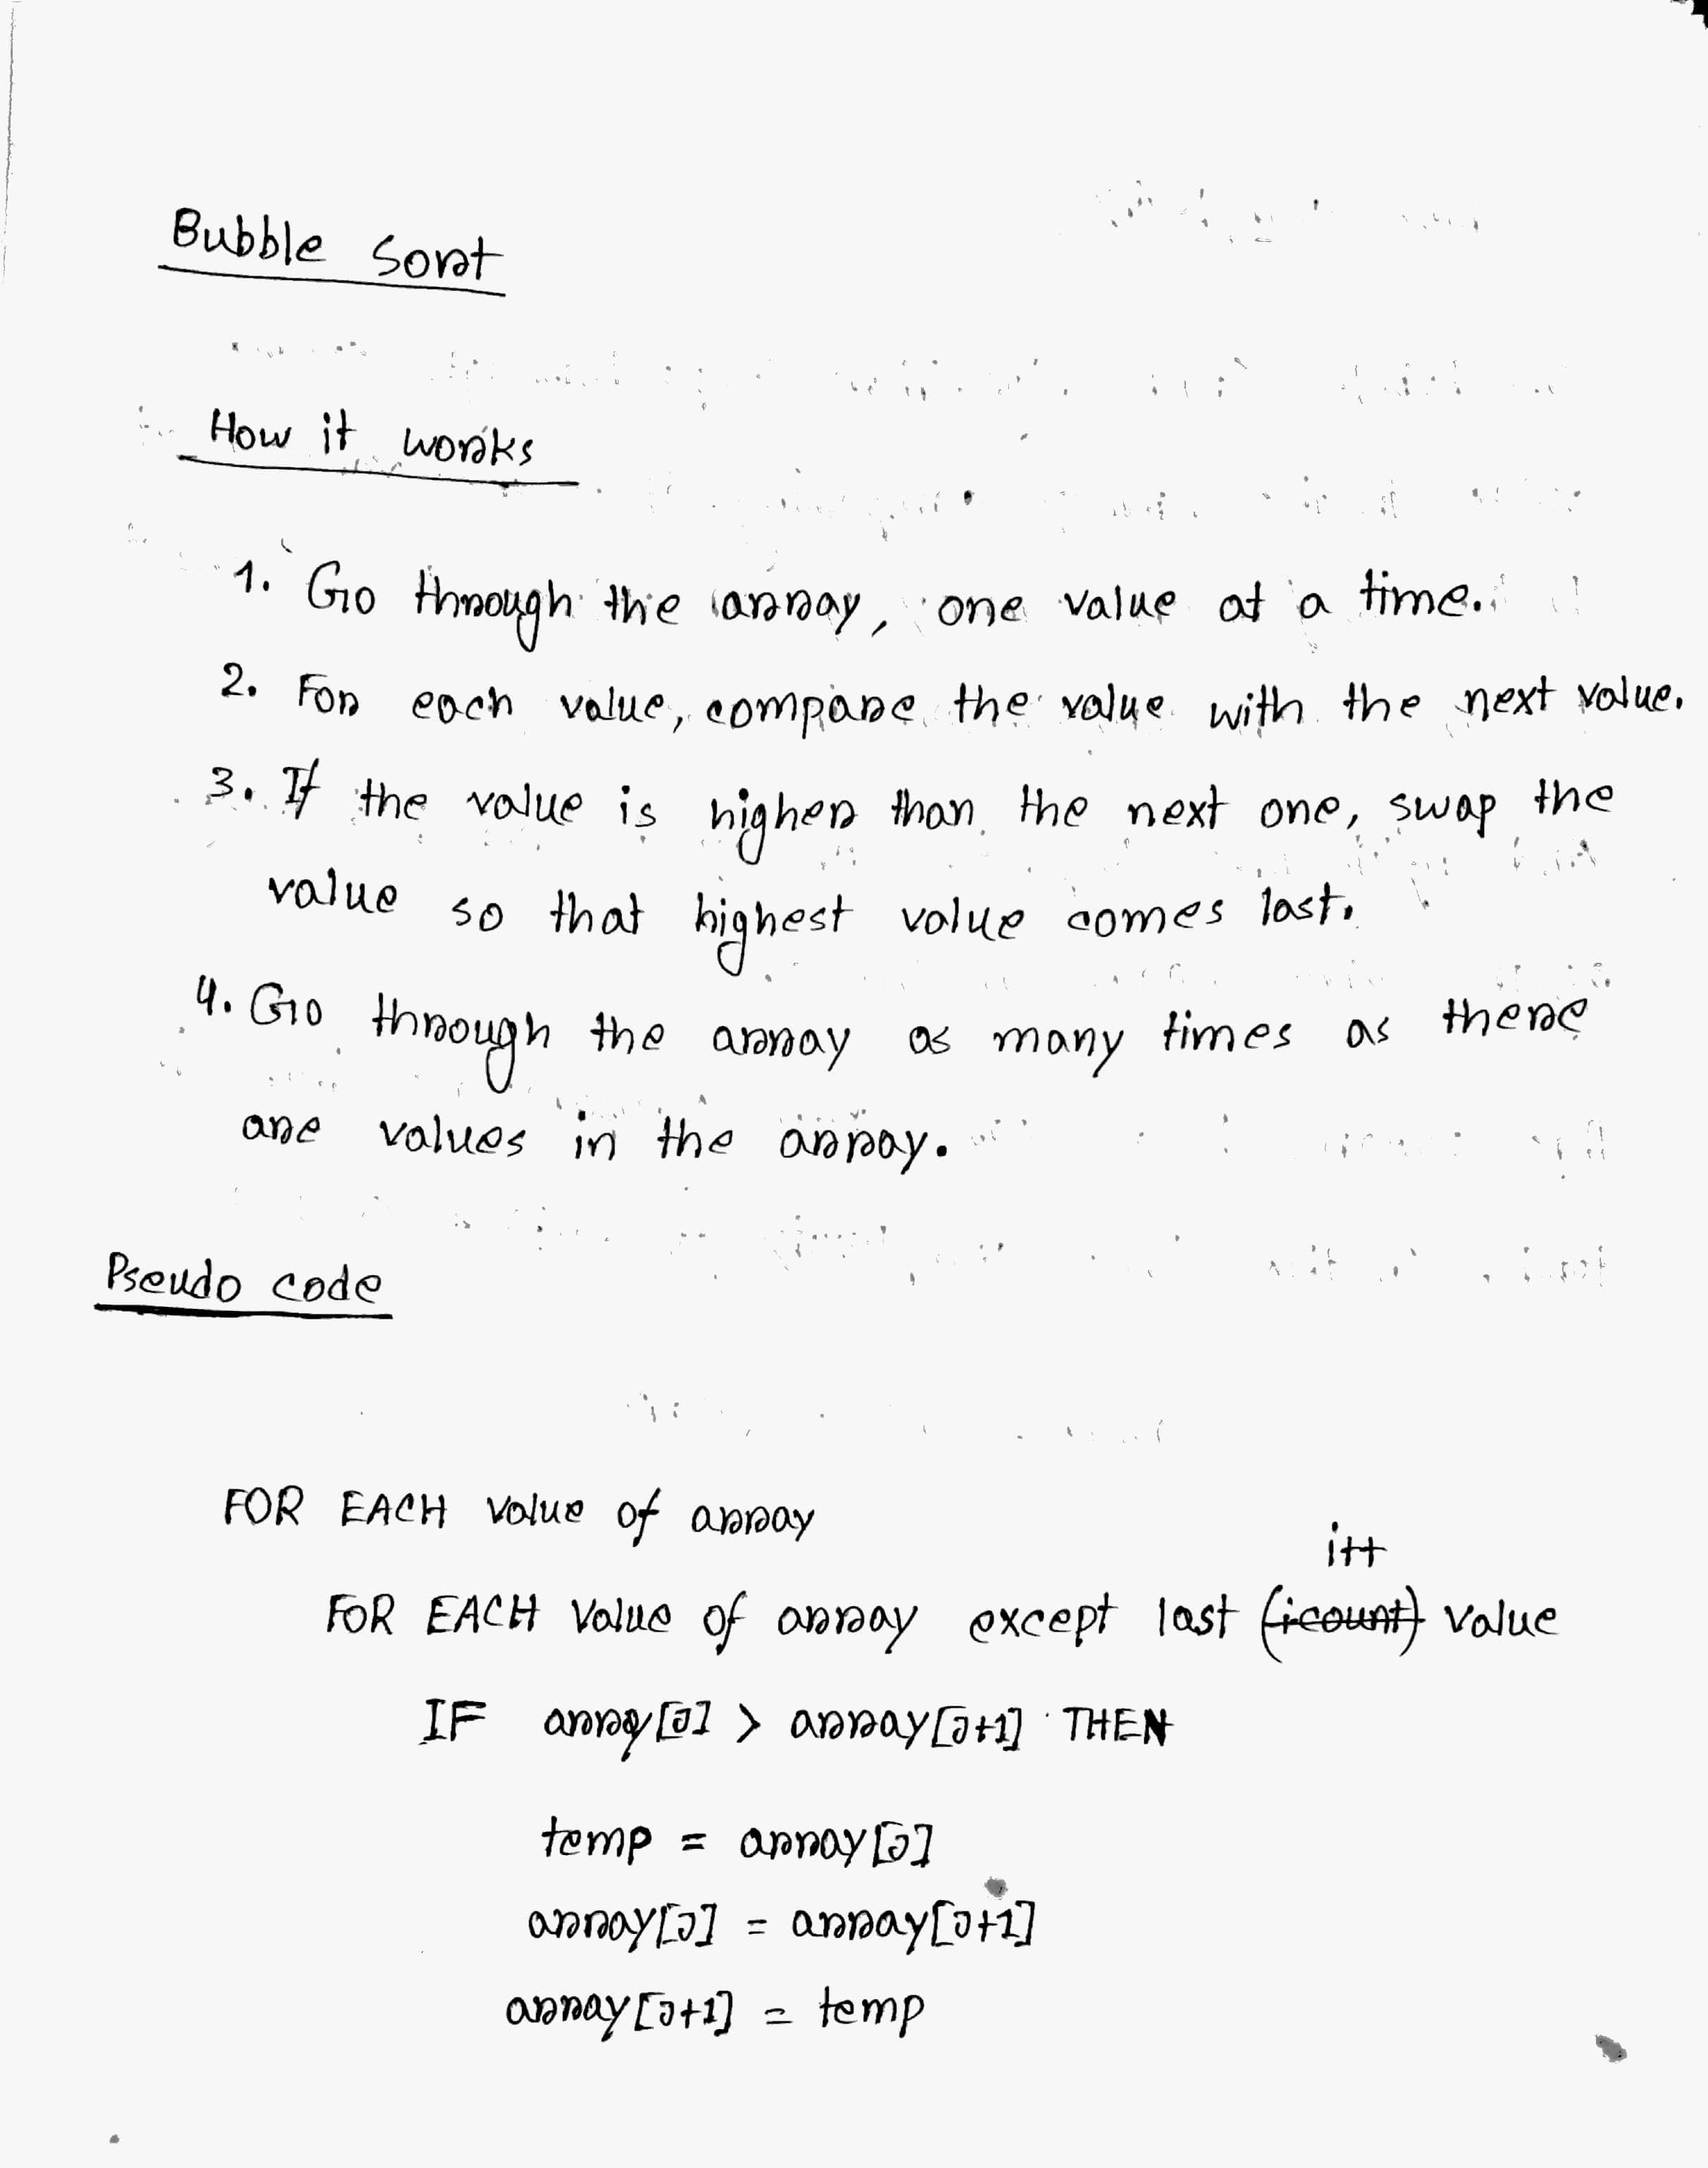 Bubble Sort
How it works
1. Go through the array, one value at a time.
2. For each value, compare the value with the next value.
3. If the value is higher than the next one, swap the
value so that highest value comes last.
4. Go through the array as many times as there
are values in the array.
Pseudo code
FOR EACH value of array
i++
FOR EACH value of array except last (i count) value
IF array[j] > array[j+1] THEN
temp = array[j]
array[j] = array[j+1]
array[j+1] = temp